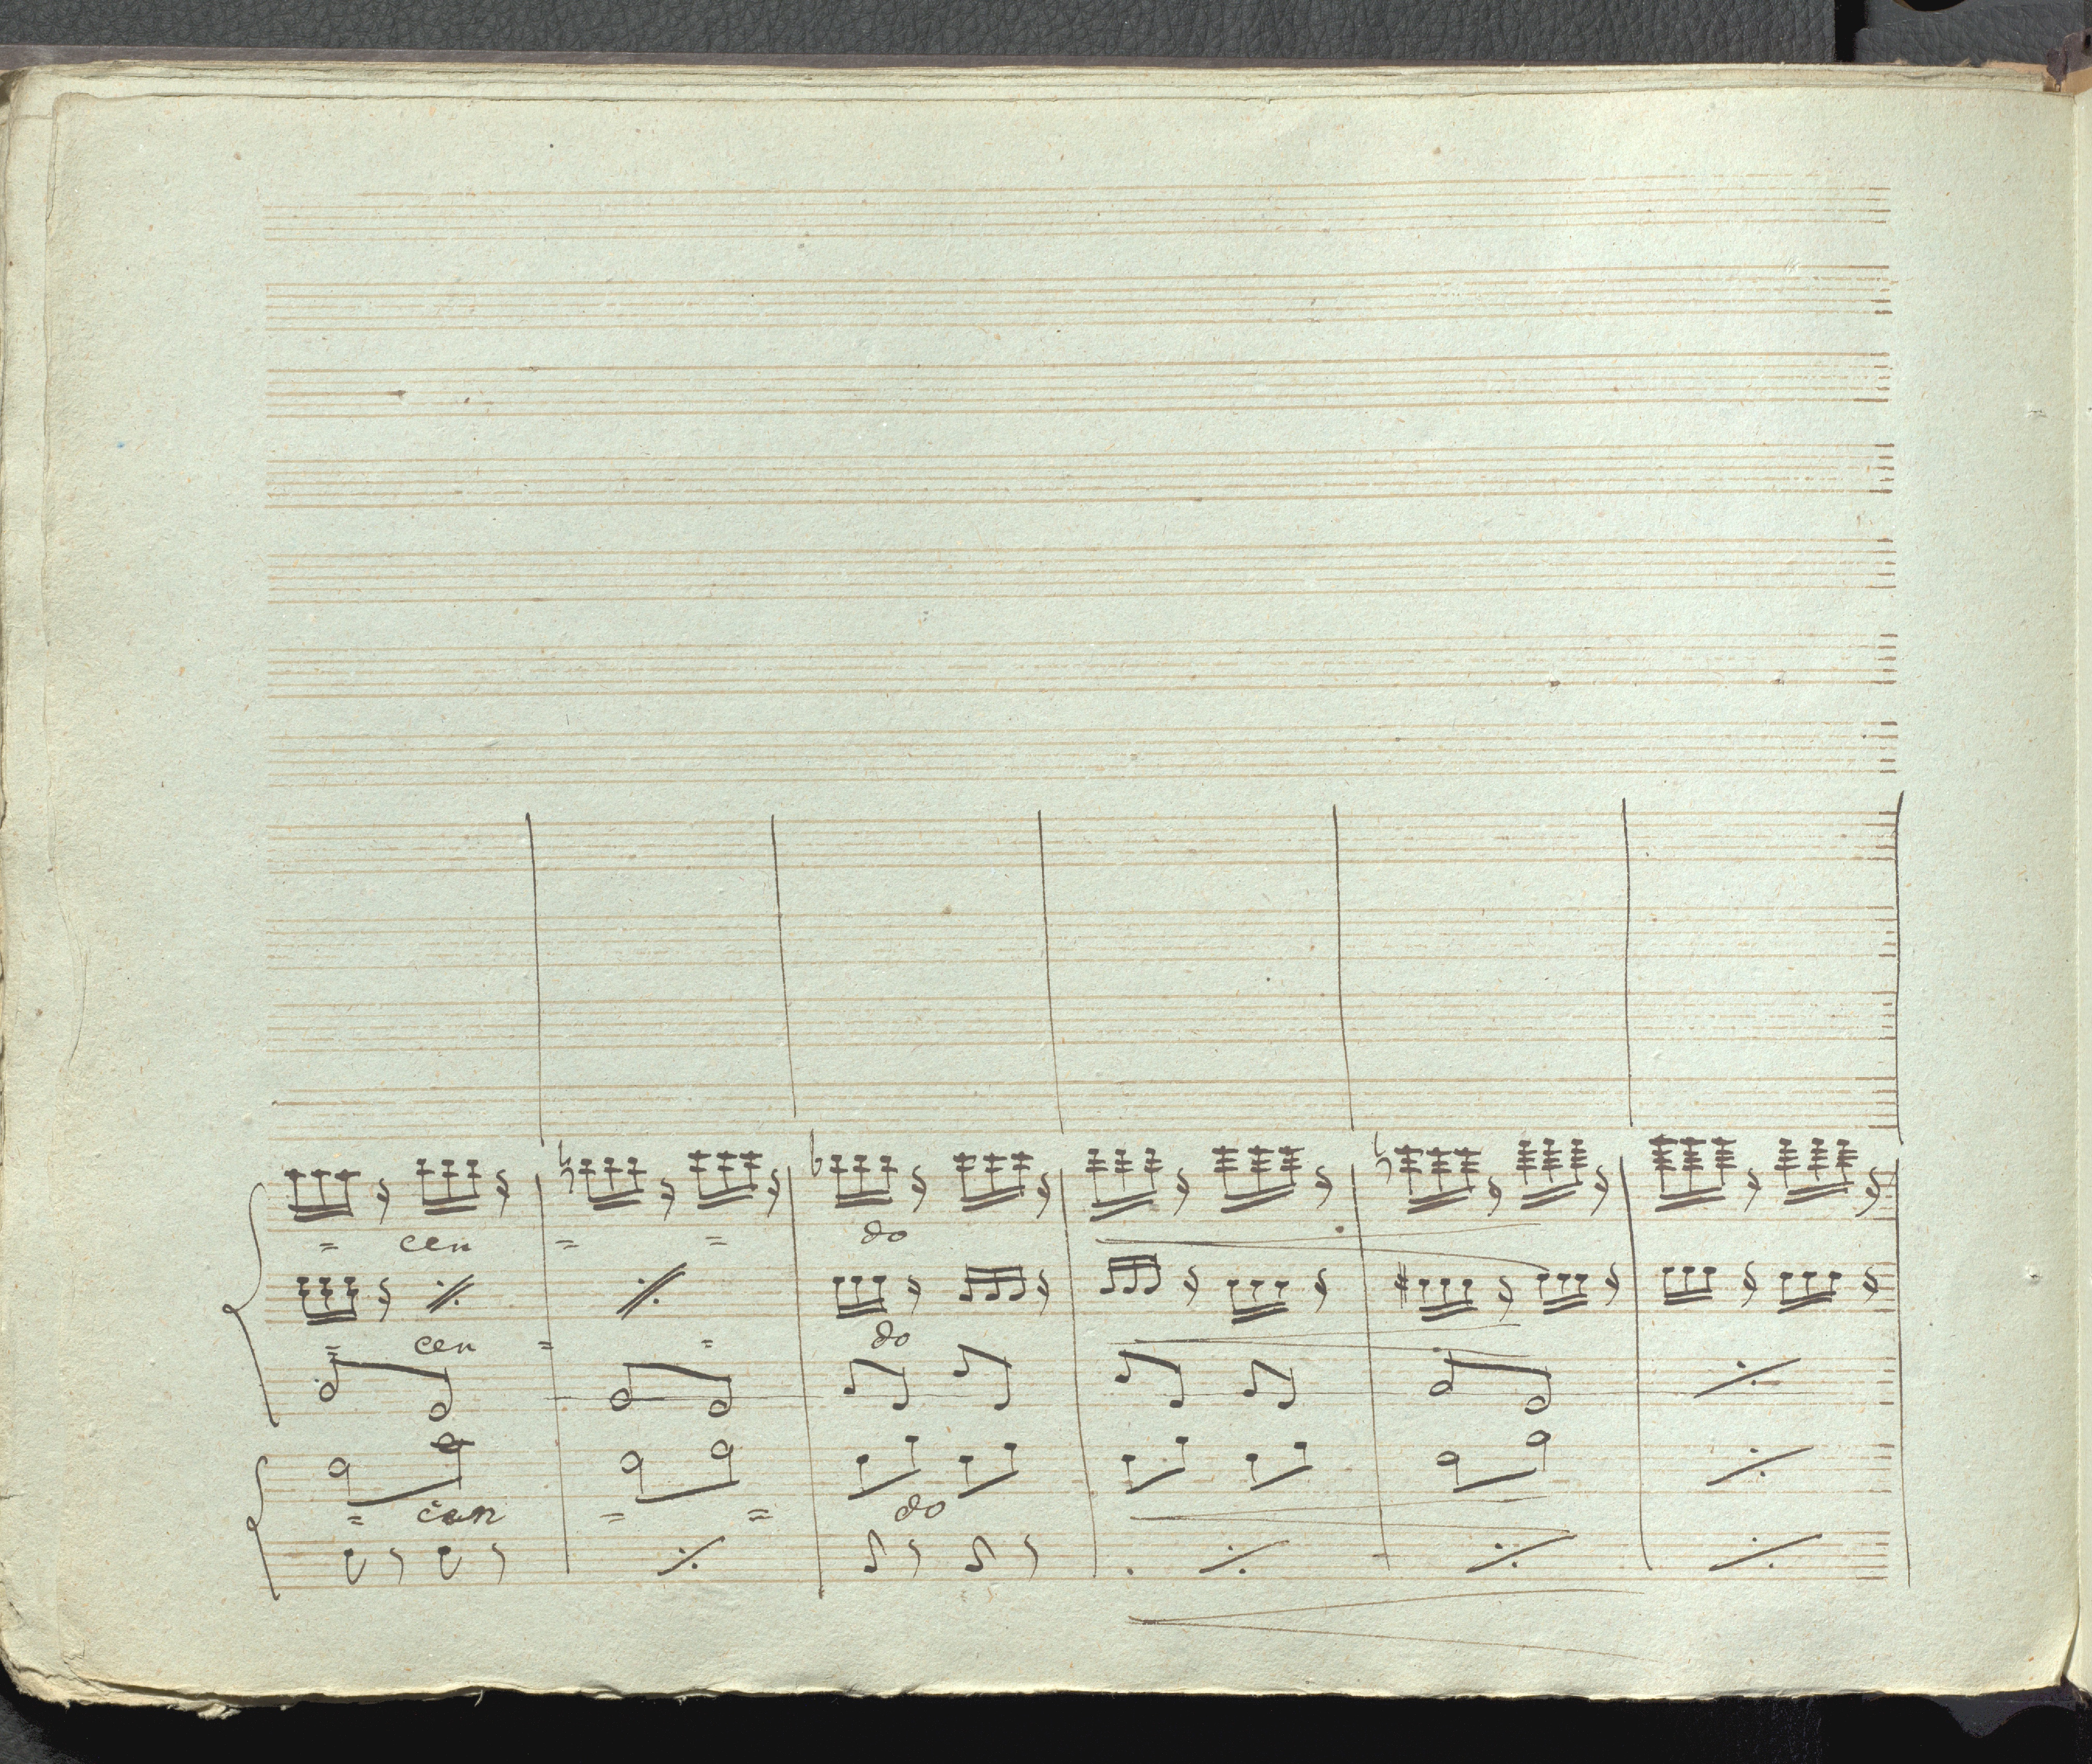 = cen = = do
= cen = = do
= cen = = do